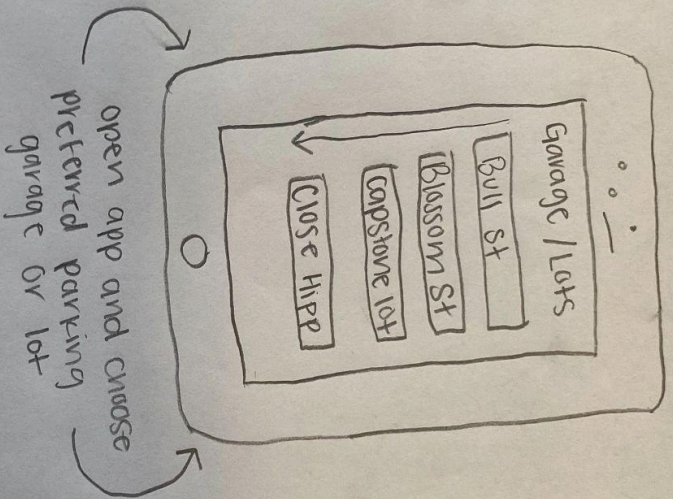 Garage / Lots
Bull St
Blossom St
Capstone lot
Close Hipp
open app and choose
preferred parking
garage or lot